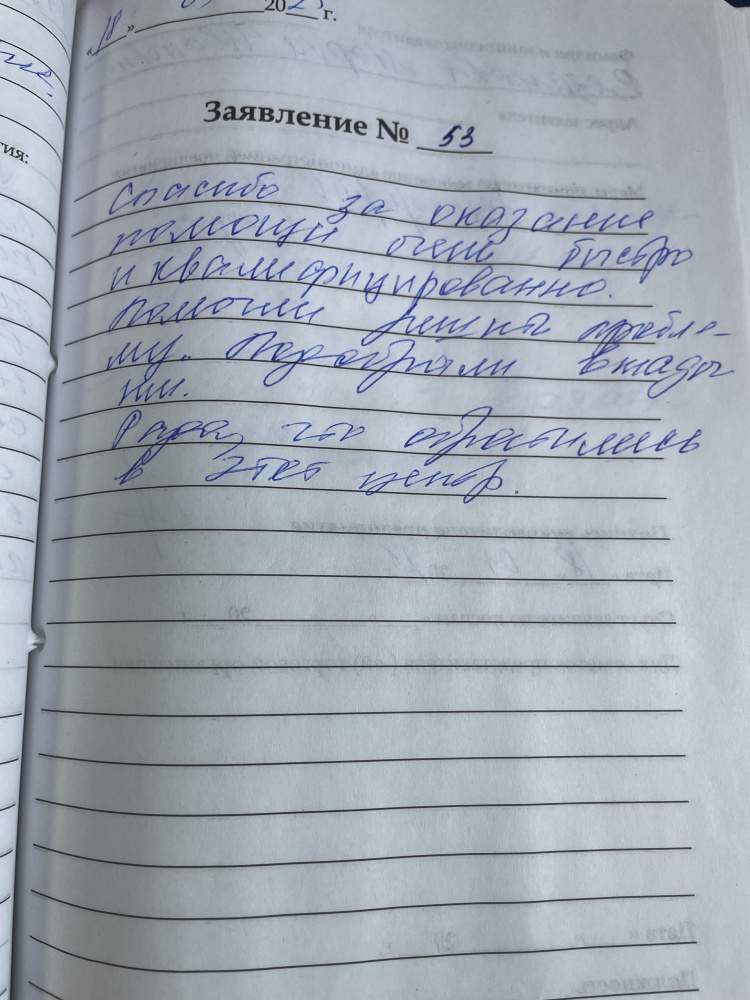 «18» 20 г.
Заявление № 53
Спасибо за оказание
помощи очень быстро
и квалифицированно.
Помогли решить пробле-
му. Подобрали вклады
ши.
Рада, что обратились
в этот центр.
тия: